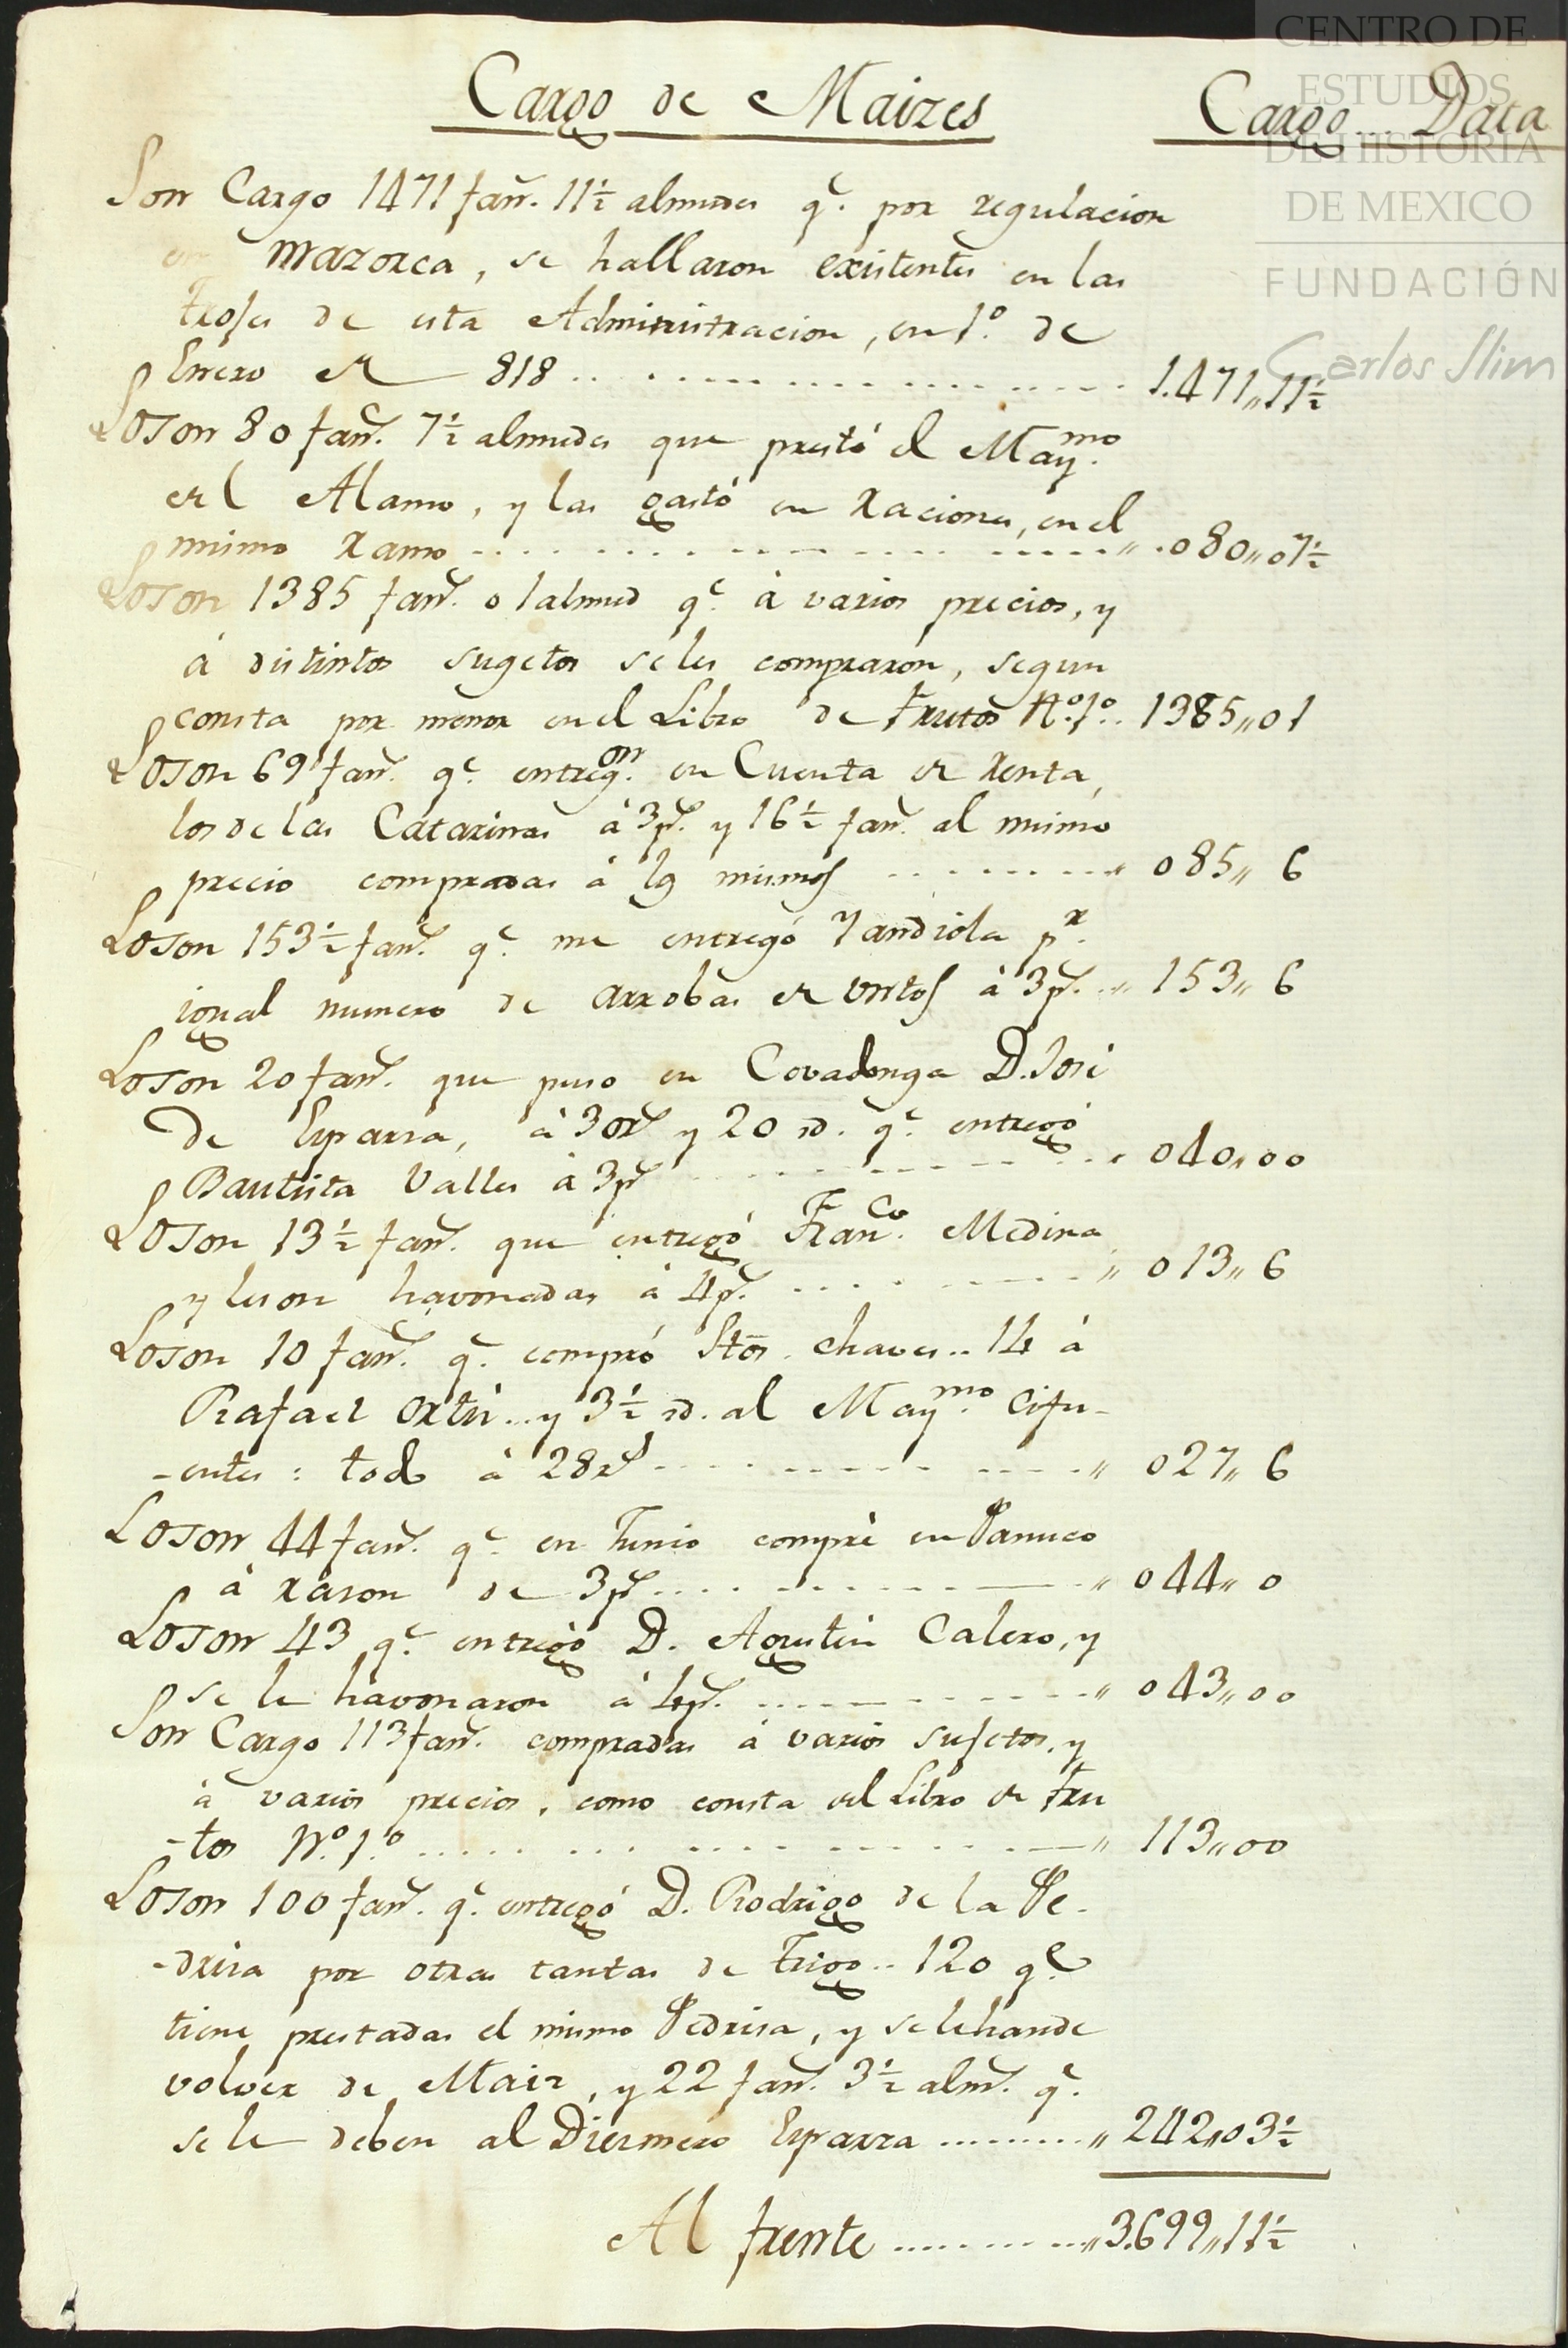 CENTRO DE
ESTUDIOS
DE HISTORIA
DE MEXICO
FUNDACIÓN
Carlos Slim
Cargo de Maizes Cargo... Data
Son Cargo 1471 fan.s 11½ almudes q.e por regulacion
en mazorca, se hallaron existentes en las
trojes de esta Administracion, en 1.o de
Enero de 818 .................... 1.471,,11½
Loson 80 fan.s 7½ almudes que prestó el Maym.o
del Alamo, y las gastó en raciones, en el
mismo ramo .................... ,, .080,,07½
Loson 1385 fan.s 01 almud q.e à varios precios, y
à distintos sugetos seles compraron, segun
consta por menor en el Libro de Frutos N.o 1.o.. 1385,,01
Loson 69 fan.s q.e entregon. en Cuenta de Renta,
los de las Catarinas à 3p.s y 16½ fan.s al mismo
precio compradas à los mismos .......... ,, 085,, 6
Loson 153½ fan.s q.e me entregó Yandiola p.r
igual numero de arrobas de Untos à 3p.s .. ,, 153,, 6
Loson 20 fan.s que puso en Covadonga D. José
de Esparza, à 30r.s y 20 id. q.e entregó
Bautista Valles à 3p.s .................... 040,,00
Loson 13½ fan.s que entregó Fran.co Medina
y leson havonadas à 4p.s .......... ,, 013,, 6
Loson 10 fan.s q.e compró Stos. Chaves.. 14 à
Rafael Ortis... y 3½ id. al Maym.o Cifu-
-entes: todo à 28r.s .................... ,, 027,, 6
Loson 44 fan.s q.e en Junio compré en Panuco
à razon de 3p.s .................... ,, 044,, 0
Loson 43 q.e entregó D. Agustin Calero, y
se le havonaron à 4p.s .................... ,, 043,,00
Son Cargo 113 fan.s compradas à varios sujetos, y
à varios precios, como consta del Libro de Fru
-tos N.o 1.o .................... ,, 113,,00
Loson 100 fan.s q.e entregó D. Rodrigo de la Pe-
-drisa por otras tantas de Trigo.. 120 q.e
tiene prestadas el mismo Pedrisa, y selehande
volver de Maiz, y 22 fan.s 3½ alm.s q.e
se le deben al Diezmero Esparza .......... ,, 242,,03½
Al frente .......... ,, 3.699,,11½